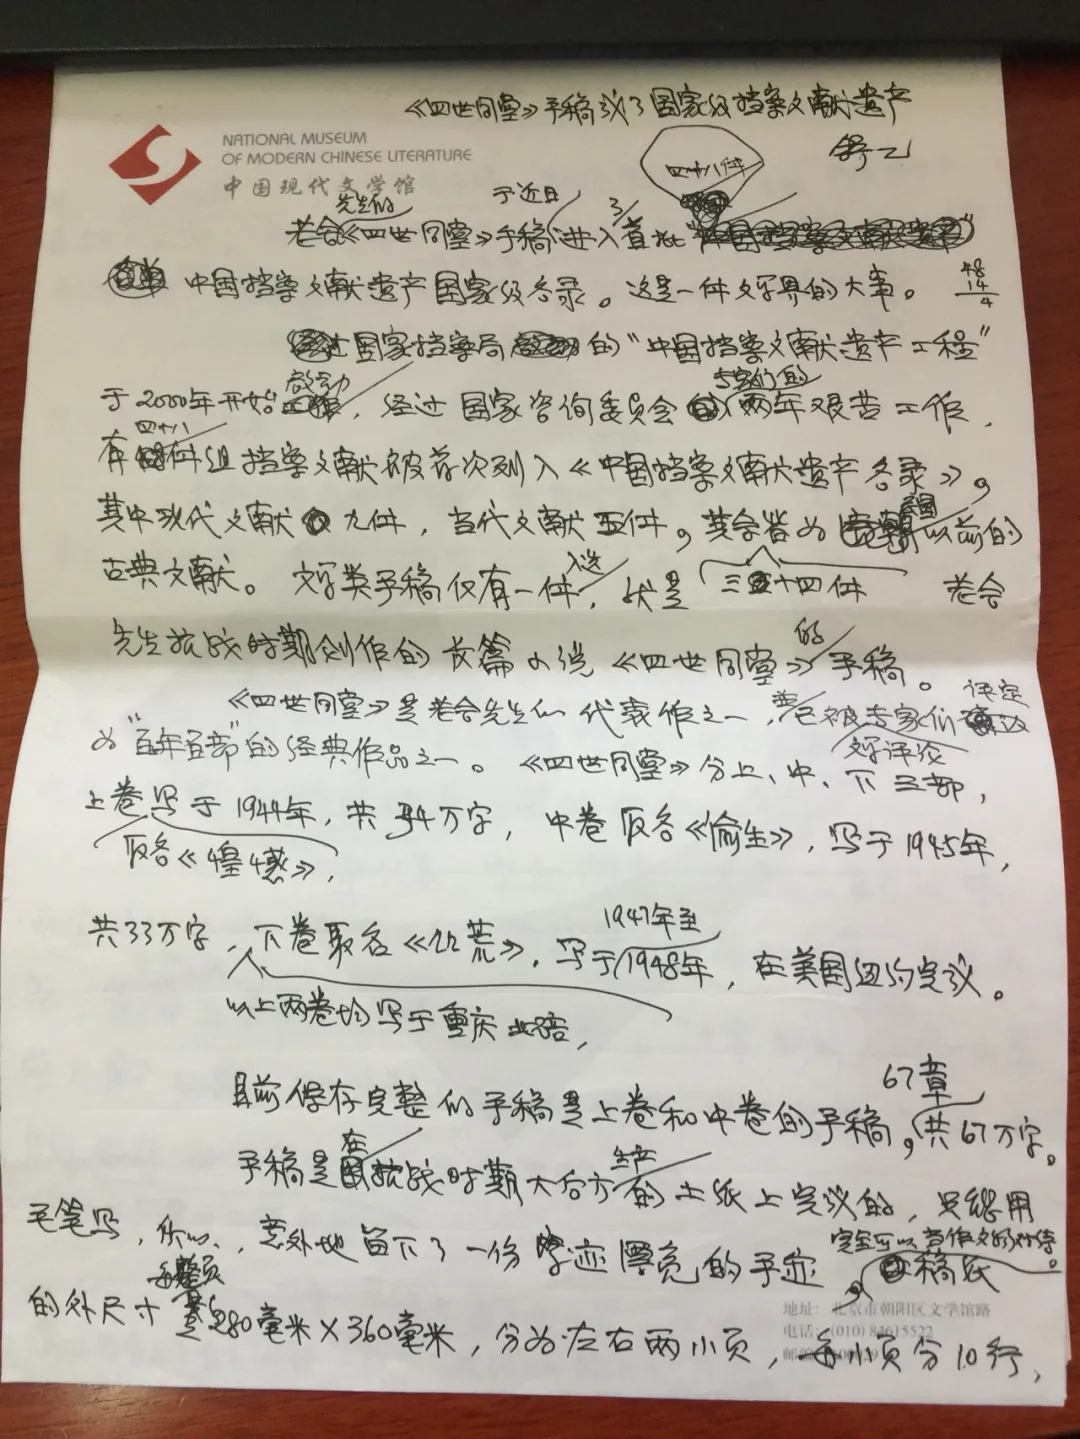 《四世同堂》手稿成了国家级档案文献遗产
舒乙
NATIONAL MUSEUM
OF MODERN CHINESE LITERATURE
中国现代文学馆
四十八件
先生的
于近日
老舍《四世同堂》手稿进入首批
中国档案文献遗产国家级名录。这是一件文学界的大事。
48
14
4
国家档案局的“中国档案文献遗产工程”
启动
专家们的
于2000年开始，经过国家咨询委员会两年艰苦工作，
四十八
有件组档案文献被首次列入《中国档案文献遗产名录》，
其中现代文献九件，当代文献五件，其余皆为民国以前的
入选
古典文献。文学类手稿仅有一件，就是
三十四件
老舍
的
先生抗战时期创作的长篇小说《四世同堂》手稿。
《四世同堂》是老舍先生的代表作之一，曾被专家们
评定
文学评论
为“百年百部”的经典作品之一。《四世同堂》分上、中、下三部，
上卷写于1944年，共34万字，中卷取名《偷生》，写于1945年，
取名《惶惑》，
1947年至
共33万字，下卷取名《饥荒》，写于1948年，在美国纽约完成。
以上两卷均写于重庆北碚，
67章
目前保存完整的手稿是上卷和中卷的手稿，共67万字。
在
生产
手稿是抗战时期大后方的土纸上完成的，只能用
毛笔写，所以，意外地留下了一份字迹漂亮的手迹
完全可以当作文物对待。
稿纸
每整页
的外尺寸是280毫米×360毫米，分为左右两小页，每小页分10行，
地址：北京市朝阳区文学馆路
电话：(010) 84615522